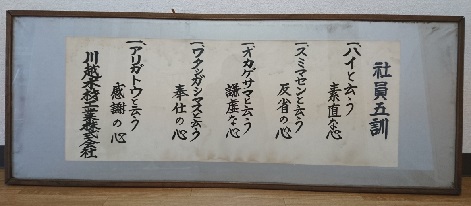 社員五訓
一、ハイと云う
素直な心
一、スミマセンと云う
反省の心
一、オカゲサマと云う
謙虚な心
一、ワタクシガシマスと云う
奉仕の心
一、アリガトウと云う
感謝の心
川越木材工業株式会社